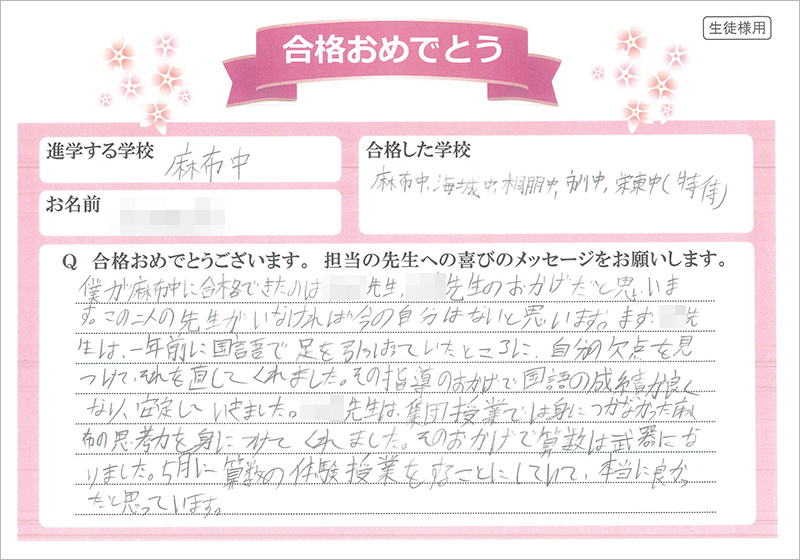 生徒様用
合格おめでとう
進学する学校
麻布中
合格した学校
麻布中,海城中,桐朋中,市川中,栄東中(特待)
お名前
Q 合格おめでとうございます。 担当の先生への喜びのメッセージをお願いします。
僕が麻布中に合格できたのは 先生, 先生のおかげだと思いま
す。この二人の先生がいなければ今の自分はないと思います。まず 先
生は、一年前に国語で足を引っぱっていたところに、自分の欠点を見
つけて、それを直してくれました。その指導のおかげで国語の成績が良く
なり、安定していきました。 先生は、集団授業では身につかなかった麻
布の思考力を身につけてくれました。そのおかげで算数は武器にな
りました。5月に算数の体験授業をすることにしていて、本当に良かっ
たと思っています。